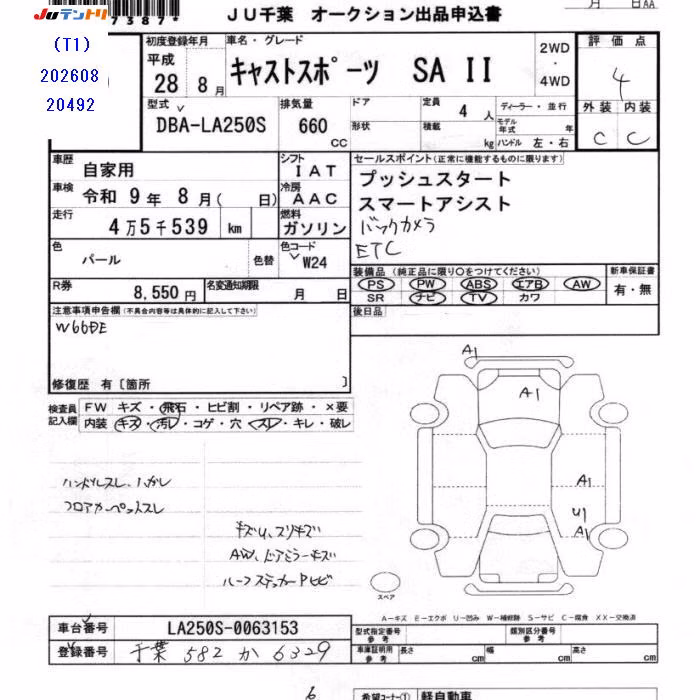 JUテントリ
7387*
JU千葉 オークション出品申込書
月 日AA
(T1)
202608
20492
初度登録年月
平成
28 8月
車名・グレード
キャストスポーツ SA II
2WD
・
4WD
評価点
4
外装 内装
C C
型式
DBA-LA250S
排気量
660
CC
ドア
形状
定員
4 人
積載
kg
ディーラー・並行
モデル年式 年
ハンドル 左・右
車歴
自家用
車検
令和 9年 8月( 日)
走行
4万5千539 km
シフト
IAT
冷房
AAC
燃料
ガソリン
セールスポイント(正常に機能するものに限ります)
プッシュスタート
スマートアシスト
バックカメラ
ETC
色
パール
色替
色コード
W24
R券
8,550円
名変通知期限
月 日
装備品(純正品に限り○をつけてください)
PS PW ABS エアB AW
SR ナビ TV カワ
新車保証書
有・無
後日品
注意事項申告欄(不具合内容等は具体的に記入して下さい)
修復歴 有〔箇所 〕
検査員
記入欄
FW キズ・飛石・ヒビ割・リペア跡・×要
内装 キズ・汚レ・コゲ・穴・スレ・キレ・破レ
ハンドルスレ、ハガレ
フロアカーペットスレ
キズU、スリキズ
AW、ドアミラーキズ
ハーフステッカーPヒビ
A1
A1
A1
U1
A1
スペア
A-キズ E-エクボ U-凹み W-補修跡 S-サビ C-腐食 XX-交換済
車台番号
LA250S-0063153
登録番号
千葉 582 か 6329
型式指定番号
参考
類別区分番号
参考
車庫証明用
参考
長さ cm
幅 cm
高さ cm
6
希望コーナー① 軽自動車